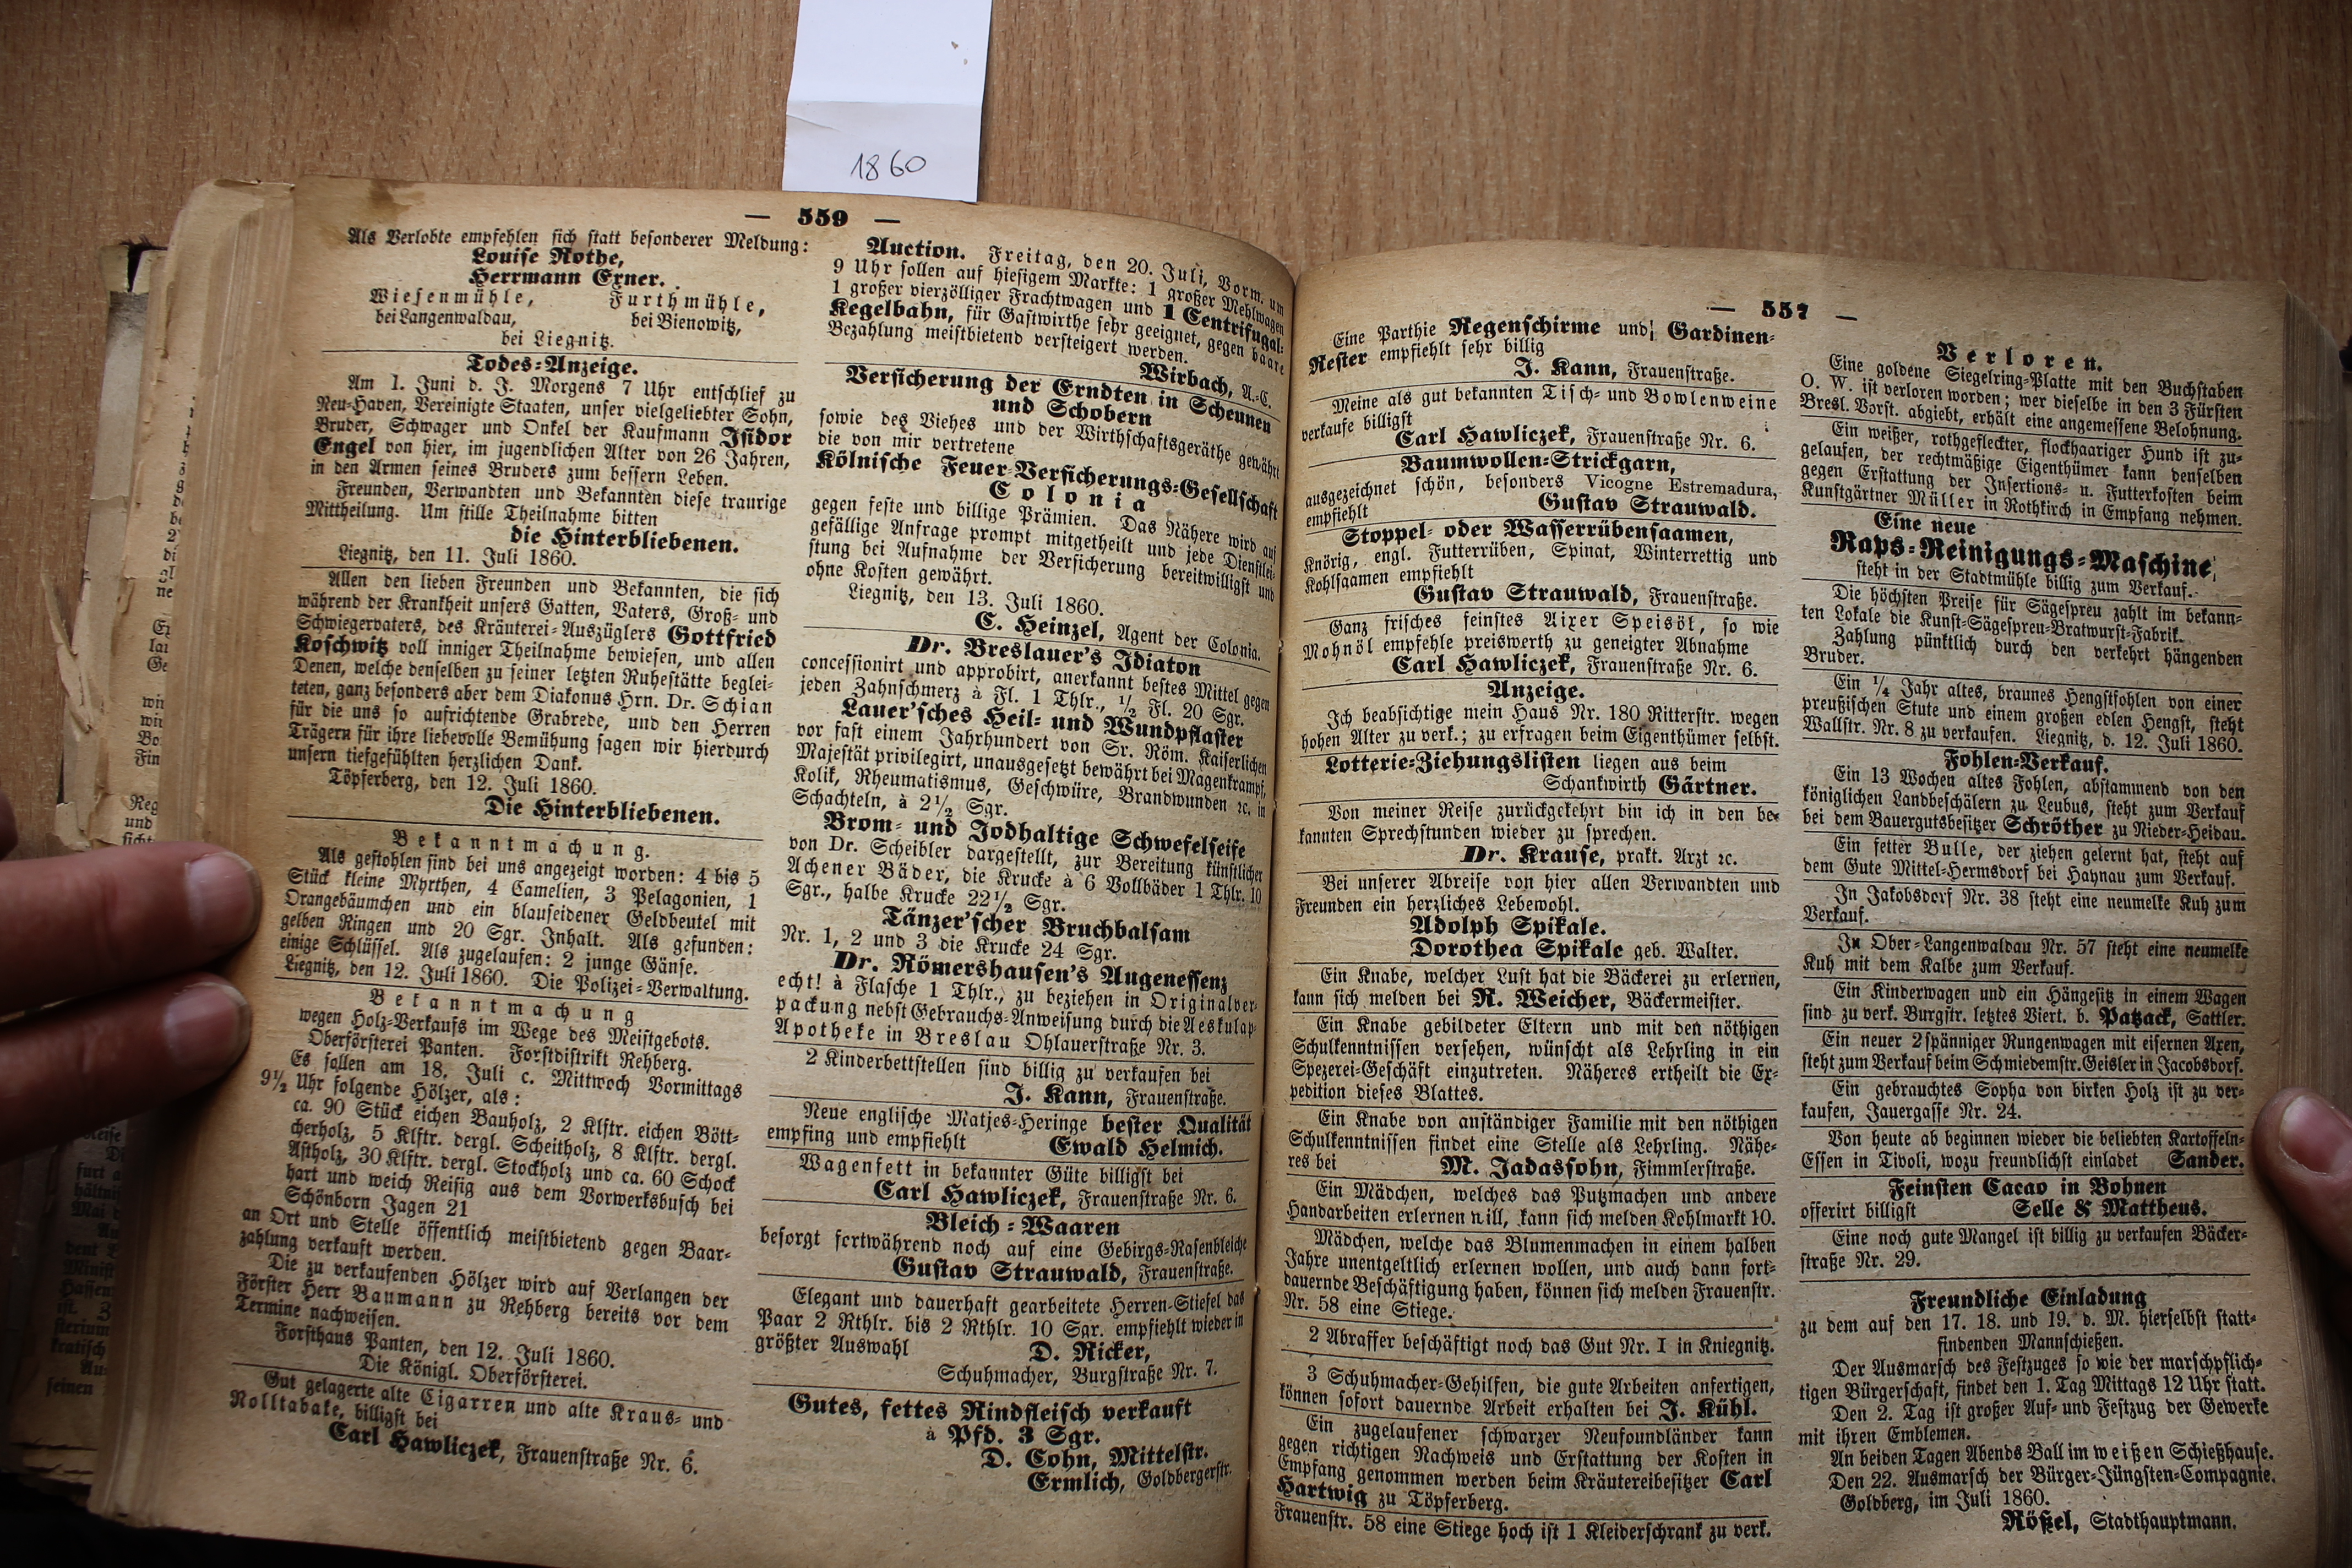 1860
— 559 —
Als Verlobte empfehlen sich statt besonderer Meldung:
Louise Rothe,
Herrmann Exner.
Wiesenmühle, Furthmühle,
bei Langenwaldau, bei Bienowitz,
bei Liegnitz.
Todes=Anzeige.
Am 1. Juni d. J. Morgens 7 Uhr entschlief zu
Neu=Haven, Vereinigte Staaten, unser vielgeliebter Sohn,
Bruder, Schwager und Onkel der Kaufmann Isidor
Engel von hier, im jugendlichen Alter von 26 Jahren,
in den Armen seines Bruders zum bessern Leben.
Freunden, Verwandten und Bekannten diese traurige
Mittheilung. Um stille Theilnahme bitten
die Hinterbliebenen.
Liegnitz, den 11. Juli 1860.
Allen den lieben Freunden und Bekannten, die sich
während der Krankheit unsers Gatten, Vaters, Groß= und
Schwiegervaters, des Kräuterei=Auszüglers Gottfried
Koschwitz voll inniger Theilnahme bewiesen, und allen
Denen, welche denselben zu seiner letzten Ruhestätte beglei=
teten, ganz besonders aber dem Diakonus Hrn. Dr. Schian
für die uns so aufrichtende Grabrede, und den Herren
Trägern für ihre liebevolle Bemühung sagen wir hierdurch
unsern tiefgefühlten herzlichen Dank.
Töpferberg, den 12. Juli 1860.
Die Hinterbliebenen.
Bekanntmachung.
Als gestohlen sind bei uns angezeigt worden: 4 bis 5
Stück kleine Myrthen, 4 Camelien, 3 Pelagonien, 1
Orangebäumchen und ein blauseidener Geldbeutel mit
gelben Ringen und 20 Sgr. Inhalt. Als gefunden:
einige Schlüssel. Als zugelaufen: 2 junge Gänse.
Liegnitz, den 12. Juli 1860. Die Polizei=Verwaltung.
Bekanntmachung
wegen Holz=Verkaufs im Wege des Meistgebots.
Oberförsterei Panten. Forstdistrikt Rehberg.
Es sollen am 18. Juli c. Mittwoch Vormittags
9½ Uhr folgende Hölzer, als:
ca. 90 Stück eichen Bauholz, 2 Klftr. eichen Bött=
cherholz, 5 Klftr. dergl. Scheitholz, 8 Klftr. dergl.
Astholz, 30 Klftr. dergl. Stockholz und ca. 60 Schock
hart und weich Reisig aus dem Vorwerksbusch bei
Schönborn Jagen 21
an Ort und Stelle öffentlich meistbietend gegen Baar=
zahlung verkauft werden.
Die zu verkaufenden Hölzer wird auf Verlangen der
Förster Herr Baumann zu Rehberg bereits vor dem
Termine nachweisen.
Forsthaus Panten, den 12. Juli 1860.
Die Königl. Oberförsterei.
Gut gelagerte alte Cigarren und alte Kraus= und
Rolltabake, billigst bei
Carl Hawliczek, Frauenstraße Nr. 6.
Auction. Freitag, den 20. Juli, Vorm. um
9 Uhr sollen auf hiesigem Markte: 1 großer Mehlwagen
1 großer vierzölliger Frachtwagen und 1 Centrifugal=
Kegelbahn, für Gastwirthe sehr geeignet, gegen baare
Bezahlung meistbietend versteigert werden.
Wirbach, A.=C.
Versicherung der Erndten in Scheunen
und Schobern
sowie des Viehes und der Wirthschaftsgeräthe gewährt
die von mir vertretene
Kölnische Feuer=Versicherungs=Gesellschaft
Colonia
gegen feste und billige Prämien. Das Nähere wird auf
gefällige Anfrage prompt mitgetheilt und jede Dienstlei=
stung bei Aufnahme der Versicherung bereitwilligst und
ohne Kosten gewährt.
Liegnitz, den 13. Juli 1860.
C. Heinzel, Agent der Colonia.
Dr. Breslauer's Idiaton
concessionirt und approbirt, anerkannt bestes Mittel gegen
jeden Zahnschmerz à Fl. 1 Thlr., ½ Fl. 20 Sgr.
Lauer'sches Heil= und Wundpflaster
vor fast einem Jahrhundert von Sr. Röm. Kaiserlichen
Majestät privilegirt, unausgesetzt bewährt bei Magenkrampf,
Kolik, Rheumatismus, Geschwüre, Brandwunden ꝛc. in
Schachteln, à 2½ Sgr.
Brom= und Jodhaltige Schwefelseife
von Dr. Scheibler dargestellt, zur Bereitung künstlicher
Achener Bäder, die Krucke à 6 Vollbäder 1 Thlr. 10
Sgr., halbe Krucke 22½ Sgr.
Tänzer'scher Bruchbalsam
Nr. 1, 2 und 3 die Krucke 24 Sgr.
Dr. Römershausen's Augenessenz
echt! à Flasche 1 Thlr., zu beziehen in Originalver=
packung nebst Gebrauchs=Anweisung durch die Aeskulap=
Apotheke in Breslau Ohlauerstraße Nr. 3.
2 Kinderbettstellen sind billig zu verkaufen bei
J. Kann, Frauenstraße.
Neue englische Matjes=Heringe bester Qualität
empfing und empfiehlt Ewald Helmich.
Wagenfett in bekannter Güte billigst bei
Carl Hawliczek, Frauenstraße Nr. 6.
Bleich=Waaren
besorgt fortwährend noch auf eine Gebirgs=Rasenbleiche
Gustav Strauwald, Frauenstraße.
Elegant und dauerhaft gearbeitete Herren=Stiefel das
Paar 2 Rthlr. bis 2 Rthlr. 10 Sgr. empfiehlt wieder in
größter Auswahl D. Ricker,
Schuhmacher, Burgstraße Nr. 7.
Gutes, fettes Rindfleisch verkauft
à Pfd. 3 Sgr.
D. Cohn, Mittelstr.
Ermlich, Goldbergerstr.
— 557 —
Eine Parthie Regenschirme und Gardinen=
Rester empfiehlt sehr billig
J. Kann, Frauenstraße.
Meine als gut bekannten Tisch= und Bowlenweine
verkaufe billigst
Carl Hawliczek, Frauenstraße Nr. 6.
Baumwollen=Strickgarn,
ausgezeichnet schön, besonders Vicogne Estremadura,
empfiehlt Gustav Strauwald.
Stoppel= oder Wasserrübensaamen,
Knörig, engl. Futterrüben, Spinat, Winterrettig und
Kohlsaamen empfiehlt
Gustav Strauwald, Frauenstraße.
Ganz frisches feinstes Aixer Speisöl, so wie
Mohnöl empfehle preiswerth zu geneigter Abnahme
Carl Hawliczek, Frauenstraße Nr. 6.
Anzeige.
Ich beabsichtige mein Haus Nr. 180 Ritterstr. wegen
hohen Alter zu verk.; zu erfragen beim Eigenthümer selbst.
Lotterie=Ziehungslisten liegen aus beim
Schankwirth Gärtner.
Von meiner Reise zurückgekehrt bin ich in den be=
kannten Sprechstunden wieder zu sprechen.
Dr. Krause, prakt. Arzt ꝛc.
Bei unserer Abreise von hier allen Verwandten und
Freunden ein herzliches Lebewohl.
Adolph Spikale.
Dorothea Spikale geb. Walter.
Ein Knabe, welcher Lust hat die Bäckerei zu erlernen,
kann sich melden bei R. Weicher, Bäckermeister.
Ein Knabe gebildeter Eltern und mit den nöthigen
Schulkenntnissen versehen, wünscht als Lehrling in ein
Spezerei=Geschäft einzutreten. Näheres ertheilt die Ex=
pedition dieses Blattes.
Ein Knabe von anständiger Familie mit den nöthigen
Schulkenntnissen findet eine Stelle als Lehrling. Nähe=
res bei M. Jadassohn, Fimmlerstraße.
Ein Mädchen, welches das Putzmachen und andere
Handarbeiten erlernen will, kann sich melden Kohlmarkt 10.
Mädchen, welche das Blumenmachen in einem halben
Jahre unentgeltlich erlernen wollen, und auch dann fort=
dauernde Beschäftigung haben, können sich melden Frauenstr.
Nr. 58 eine Stiege.
2 Abraffer beschäftigt noch das Gut Nr. I in Kniegnitz.
3 Schuhmacher=Gehilfen, die gute Arbeiten anfertigen,
können sofort dauernde Arbeit erhalten bei J. Kühl.
Ein zugelaufener schwarzer Neufoundländer kann
gegen richtigen Nachweis und Erstattung der Kosten in
Empfang genommen werden beim Kräutereibesitzer Carl
Hartwig zu Töpferberg.
Frauenstr. 58 eine Stiege hoch ist 1 Kleiderschrank zu verk.
Verloren.
Eine goldene Siegelring=Platte mit den Buchstaben
O. W. ist verloren worden; wer dieselbe in den 3 Fürsten
Bresl. Vorst. abgiebt, erhält eine angemessene Belohnung.
Ein weißer, rothgefleckter, flockhaariger Hund ist zu=
gelaufen, der rechtmäßige Eigenthümer kann denselben
gegen Erstattung der Insertions= u. Futterkosten beim
Kunstgärtner Müller in Rothkirch in Empfang nehmen.
Eine neue
Raps=Reinigungs=Maschine,
steht in der Stadtmühle billig zum Verkauf.
Die höchsten Preise für Sägespreu zahlt im bekann=
ten Lokale die Kunst=Sägespreu=Bratwurst=Fabrik.
Zahlung pünktlich durch den verkehrt hängenden
Bruder.
Ein ¼ Jahr altes, braunes Hengstfohlen von einer
preußischen Stute und einem großen edlen Hengst, steht
Wallstr. Nr. 8 zu verkaufen. Liegnitz, d. 12. Juli 1860.
Fohlen=Verkauf.
Ein 13 Wochen altes Fohlen, abstammend von den
königlichen Landbeschälern zu Leubus, steht zum Verkauf
bei dem Bauergutsbesitzer Schröther zu Nieder=Heidau.
Ein fetter Bulle, der ziehen gelernt hat, steht auf
dem Gute Mittel=Hermsdorf bei Haynau zum Verkauf.
In Jakobsdorf Nr. 38 steht eine neumelke Kuh zum
Verkauf.
In Ober=Langenwaldau Nr. 57 steht eine neumelke
Kuh mit dem Kalbe zum Verkauf.
Ein Kinderwagen und ein Hängesitz in einem Wagen
sind zu verk. Burgstr. letztes Viert. b. Patzack, Sattler.
Ein neuer 2spänniger Rungenwagen mit eisernen Axen,
steht zum Verkauf beim Schmiedemstr. Geisler in Jacobsdorf.
Ein gebrauchtes Sopha von birken Holz ist zu ver=
kaufen, Jauergasse Nr. 24.
Von heute ab beginnen wieder die beliebten Kartoffeln=
Essen in Tivoli, wozu freundlichst einladet Sander.
Feinsten Cacao in Bohnen
offerirt billigst Selle & Mattheus.
Eine noch gute Mangel ist billig zu verkaufen Bäcker=
straße Nr. 29.
Freundliche Einladung
zu dem auf den 17. 18. und 19. d. M. hierselbst statt=
findenden Mannschießen.
Der Ausmarsch des Festzuges so wie der marschpflich=
tigen Bürgerschaft, findet den 1. Tag Mittags 12 Uhr statt.
Den 2. Tag ist großer Auf= und Festzug der Gewerke
mit ihren Emblemen.
An beiden Tagen Abends Ball im weißen Schießhause.
Den 22. Ausmarsch der Bürger=Jüngsten=Compagnie.
Goldberg, im Juli 1860.
Rößel, Stadthauptmann.